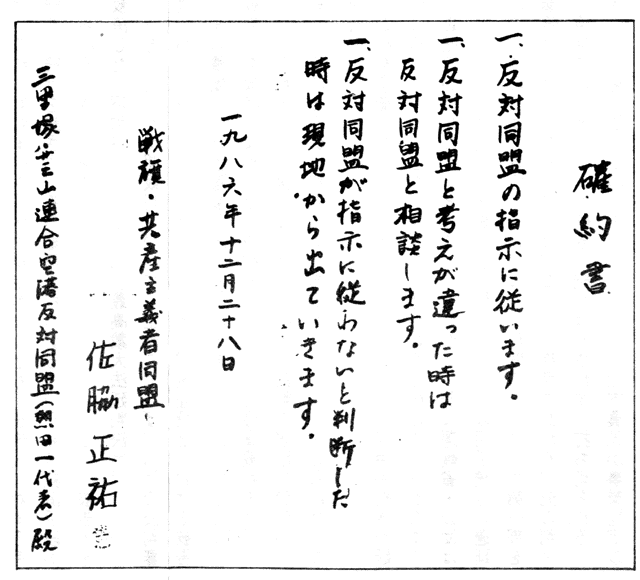 確約書
一、反対同盟の指示に従います。
一、反対同盟と考えが違った時は
反対同盟と相談します。
一、反対同盟が指示に従わないと判断した
時は現地から出ていきます。
一九八六年十二月二十八日
戦旗・共産主義者同盟
佐脇正祐
三里塚芝山連合空港反対同盟(熱田一代表)殿